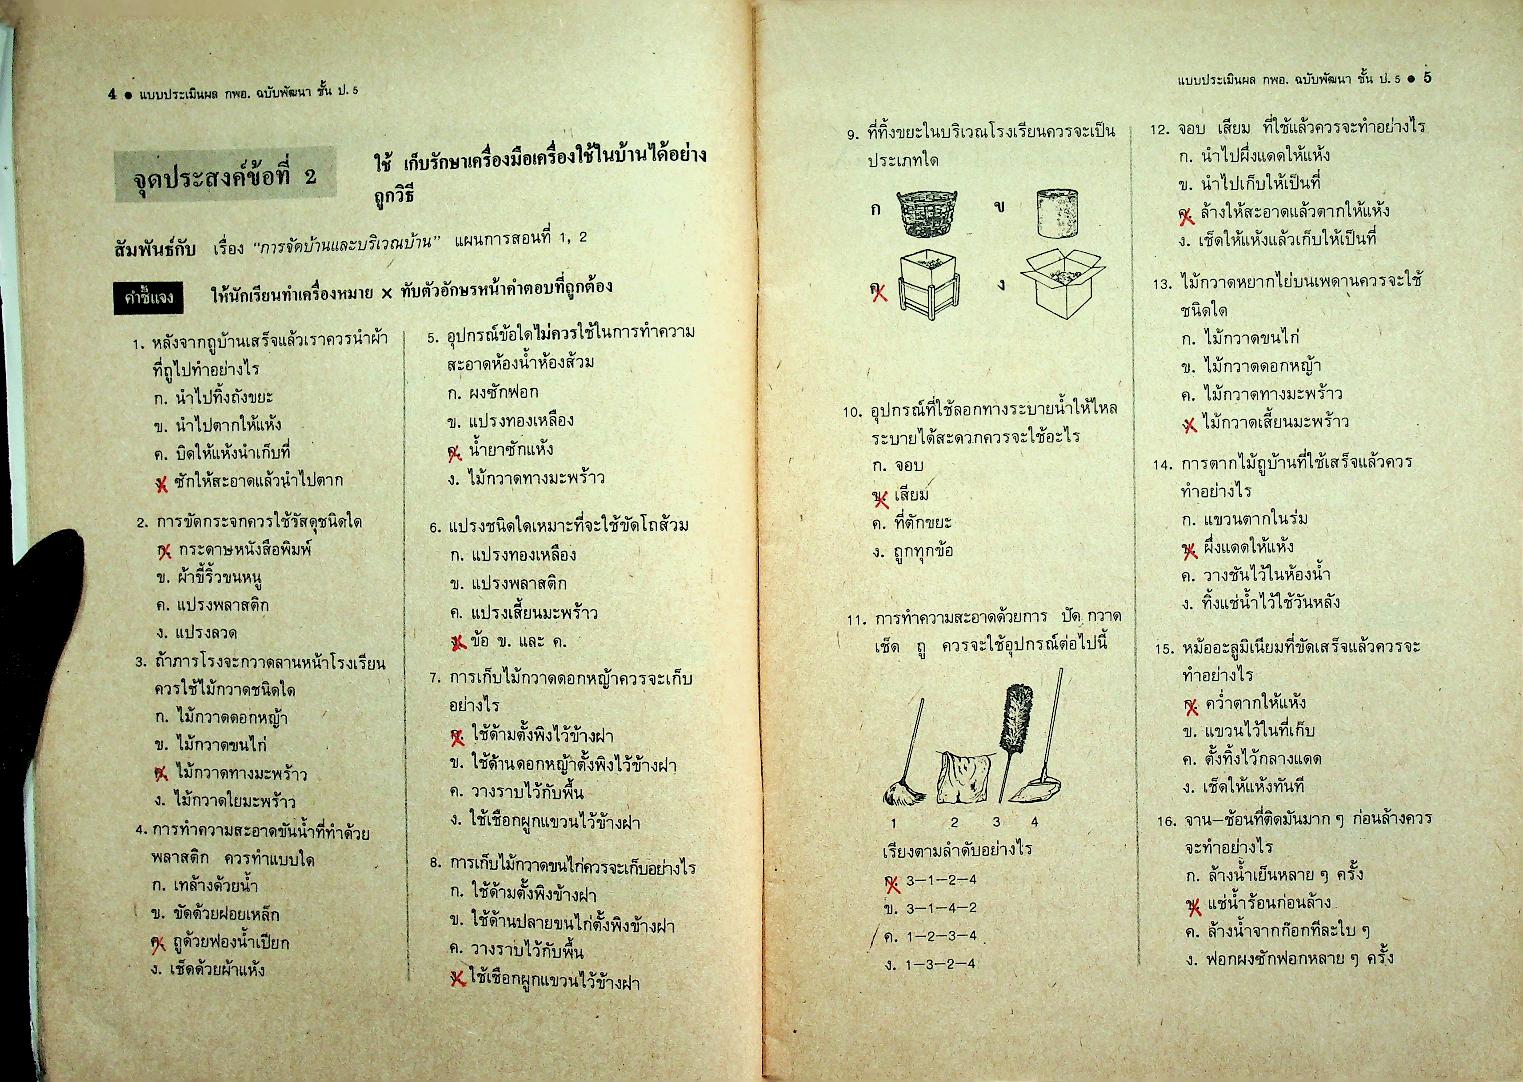 4 ● แบบประเมินผล กพอ. ฉบับพัฒนา ชั้น ป. 5
จุดประสงค์ข้อที่ 2
ใช้ เก็บรักษาเครื่องมือเครื่องใช้ในบ้านได้อย่าง
ถูกวิธี
สัมพันธ์กับ เรื่อง “การจัดบ้านและบริเวณบ้าน” แผนการสอนที่ 1, 2
คำชี้แจง ให้นักเรียนทำเครื่องหมาย × ทับตัวอักษรหน้าคำตอบที่ถูกต้อง
1. หลังจากถูบ้านเสร็จแล้วเราควรนำผ้า
ที่ถูไปทำอย่างไร
ก. นำไปทิ้งถังขยะ
ข. นำไปตากให้แห้ง
ค. บิดให้แห้งนำเก็บที่
ง. ซักให้สะอาดแล้วนำไปตาก
2. การขัดกระจกควรใช้วัสดุชนิดใด
ก. กระดาษหนังสือพิมพ์
ข. ผ้าขี้ริ้วขนหนู
ค. แปรงพลาสติก
ง. แปรงลวด
3. ถ้าภารโรงจะกวาดลานหน้าโรงเรียน
ควรใช้ไม้กวาดชนิดใด
ก. ไม้กวาดดอกหญ้า
ข. ไม้กวาดขนไก่
ค. ไม้กวาดทางมะพร้าว
ง. ไม้กวาดใยมะพร้าว
4. การทำความสะอาดขันน้ำที่ทำด้วย
พลาสติก ควรทำแบบใด
ก. เทล้างด้วยน้ำ
ข. ขัดด้วยฝอยเหล็ก
ค. ถูด้วยฟองน้ำเปียก
ง. เช็ดด้วยผ้าแห้ง
5. อุปกรณ์ข้อใดไม่ควรใช้ในการทำความ
สะอาดห้องน้ำห้องส้วม
ก. ผงซักฟอก
ข. แปรงทองเหลือง
ค. น้ำยาซักแห้ง
ง. ไม้กวาดทางมะพร้าว
6. แปรงชนิดใดเหมาะที่จะใช้ขัดโถส้วม
ก. แปรงทองเหลือง
ข. แปรงพลาสติก
ค. แปรงเสี้ยนมะพร้าว
ง. ข้อ ข. และ ค.
7. การเก็บไม้กวาดดอกหญ้าควรจะเก็บ
อย่างไร
ก. ใช้ด้ามตั้งพิงไว้ข้างฝา
ข. ใช้ด้านดอกหญ้าตั้งพิงไว้ข้างฝา
ค. วางราบไว้กับพื้น
ง. ใช้เชือกผูกแขวนไว้ข้างฝา
8. การเก็บไม้กวาดขนไก่ควรจะเก็บอย่างไร
ก. ใช้ด้ามตั้งพิงข้างฝา
ข. ใช้ด้านปลายขนไก่ตั้งพิงข้างฝา
ค. วางราบไว้กับพื้น
ง. ใช้เชือกผูกแขวนไว้ข้างฝา
แบบประเมินผล กพอ. ฉบับพัฒนา ชั้น ป. 5 ● 5
9. ที่ทิ้งขยะในบริเวณโรงเรียนควรจะเป็น
ประเภทใด
ก ข
ค ง
10. อุปกรณ์ที่ใช้ลอกทางระบายน้ำให้ไหล
ระบายได้สะดวกควรจะใช้อะไร
ก. จอบ
ข. เสียม
ค. ที่ตักขยะ
ง. ถูกทุกข้อ
11. การทำความสะอาดด้วยการ ปัด กวาด
เช็ด ถู ควรจะใช้อุปกรณ์ต่อไปนี้
1 2 3 4
เรียงตามลำดับอย่างไร
ก. 3–1–2–4
ข. 3–1–4–2
ค. 1–2–3–4
ง. 1–3–2–4
12. จอบ เสียม ที่ใช้แล้วควรจะทำอย่างไร
ก. นำไปผึ่งแดดให้แห้ง
ข. นำไปเก็บให้เป็นที่
ค. ล้างให้สะอาดแล้วตากให้แห้ง
ง. เช็ดให้แห้งแล้วเก็บให้เป็นที่
13. ไม้กวาดหยากไย่บนเพดานควรจะใช้
ชนิดใด
ก. ไม้กวาดขนไก่
ข. ไม้กวาดดอกหญ้า
ค. ไม้กวาดทางมะพร้าว
ง. ไม้กวาดเสี้ยนมะพร้าว
14. การตากไม้ถูบ้านที่ใช้เสร็จแล้วควร
ทำอย่างไร
ก. แขวนตากในร่ม
ข. ผึ่งแดดให้แห้ง
ค. วางชันไว้ในห้องน้ำ
ง. ทิ้งแช่น้ำไว้ใช้วันหลัง
15. หม้ออะลูมิเนียมที่ขัดเสร็จแล้วควรจะ
ทำอย่างไร
ก. คว่ำตากให้แห้ง
ข. แขวนไว้ในที่เก็บ
ค. ตั้งทิ้งไว้กลางแดด
ง. เช็ดให้แห้งทันที
16. จาน–ช้อนที่ติดมันมาก ๆ ก่อนล้างควร
จะทำอย่างไร
ก. ล้างน้ำเย็นหลาย ๆ ครั้ง
ข. แช่น้ำร้อนก่อนล้าง
ค. ล้างน้ำจากก๊อกทีละใบ ๆ
ง. ฟอกผงซักฟอกหลาย ๆ ครั้ง